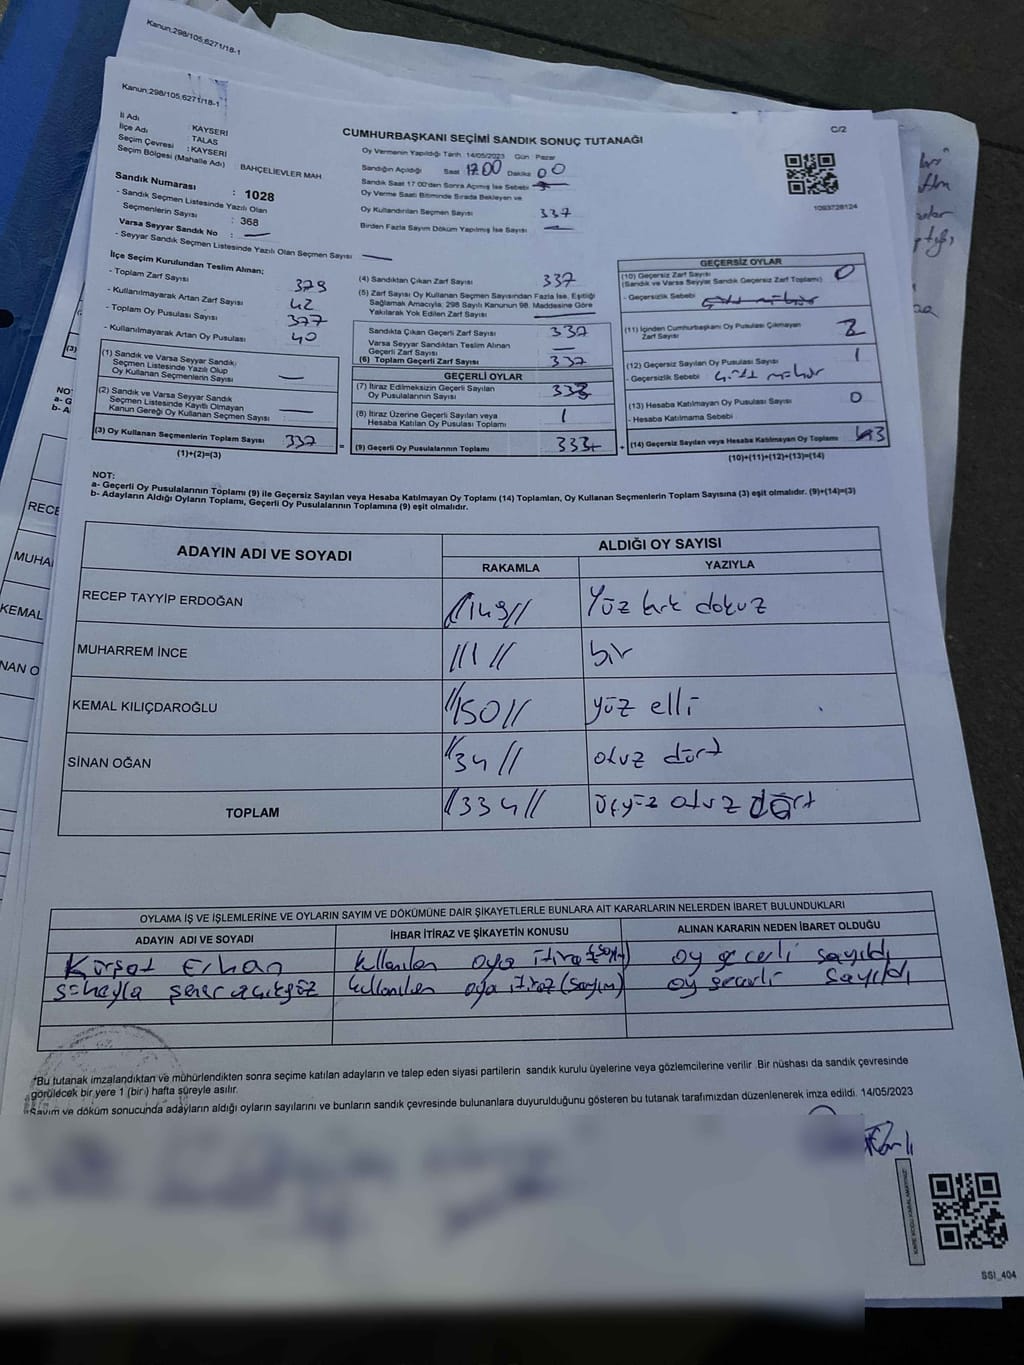 Kanun;298/105,6271/18-1
Kanun;298/105,6271/18-1
C/2
İl Adı : KAYSERİ
İlçe Adı : TALAS
Seçim Çevresi : KAYSERİ
Seçim Bölgesi (Mahalle Adı) BAHÇELİEVLER MAH
Sandık Numarası : 1028
- Sandık Seçmen Listesinde Yazılı Olan
Seçmenlerin Sayısı : 368
Varsa Seyyar Sandık No :
- Seyyar Sandık Seçmen Listesinde Yazılı Olan Seçmen Sayısı
CUMHURBAŞKANI SEÇİMİ SANDIK SONUÇ TUTANAĞI
Oy Vermenin Yapıldığı Tarih 14/05/2023 Gün : Pazar
Sandığın Açıldığı Saat 17.00 Dakika 00
Sandık Saat 17:00'den Sonra Açılmış İse Sebebi
Oy Verme Saati Bitiminde Sırada Bekleyen ve
Oy Kullandırılan Seçmen Sayısı 337
Birden Fazla Sayım Döküm Yapılmış İse Sayısı
1093728124
İlçe Seçim Kurulundan Teslim Alınan;
- Toplam Zarf Sayısı 379
- Kullanılmayarak Artan Zarf Sayısı 42
- Toplam Oy Pusulası Sayısı 377
- Kullanılmayarak Artan Oy Pusulası 40
(1) Sandık ve Varsa Seyyar Sandık
Seçmen Listesinde Yazılı Olup
Oy Kullanan Seçmenlerin Sayısı
(2) Sandık ve Varsa Seyyar Sandık
Seçmen Listesinde Kayıtlı Olmayan
Kanun Gereği Oy Kullanan Seçmen Sayısı
(3) Oy Kullanan Seçmenlerin Toplam Sayısı 337
(1)+(2)=(3)
(4) Sandıktan Çıkan Zarf Sayısı 337
(5) Zarf Sayısı Oy Kullanan Seçmen Sayısından Fazla İse, Eşitliği
Sağlamak Amacıyla, 298 Sayılı Kanunun 98. Maddesine Göre
Yakılarak Yok Edilen Zarf Sayısı
Sandıkta Çıkan Geçerli Zarf Sayısı 337
Varsa Seyyar Sandıktan Teslim Alınan
Geçerli Zarf Sayısı
(6) Toplam Geçerli Zarf Sayısı 337
GEÇERLİ OYLAR
(7) İtiraz Edilmeksizin Geçerli Sayılan
Oy Pusulalarının Sayısı 333
(8) İtiraz Üzerine Geçerli Sayılan veya
Hesaba Katılan Oy Pusulası Toplamı 1
(9) Geçerli Oy Pusulalarının Toplamı 334
GEÇERSİZ OYLAR
(10) Geçersiz Zarf Sayısı
(Sandık ve Varsa Seyyar Sandık Geçersiz Zarf Toplamı) 0
- Geçersizlik Sebebi
(11) İçinden Cumhurbaşkanı Oy Pusulası Çıkmayan
Zarf Sayısı 2
(12) Geçersiz Sayılan Oy Pusulası Sayısı 1
- Geçersizlik Sebebi mühür
(13) Hesaba Katılmayan Oy Pusulası Sayısı 0
- Hesaba Katılmama Sebebi
(14) Geçersiz Sayılan veya Hesaba Katılmayan Oy Toplamı 3
(10)+(11)+(12)+(13)=(14)
NOT:
a- Geçerli Oy Pusulalarının Toplamı (9) ile Geçersiz Sayılan veya Hesaba Katılmayan Oy Toplamı (14) Toplamları, Oy Kullanan Seçmenlerin Toplam Sayısına (3) eşit olmalıdır. (9)+(14)=(3)
b- Adayların Aldığı Oyların Toplamı, Geçerli Oy Pusulalarının Toplamına (9) eşit olmalıdır.
ADAYIN ADI VE SOYADI
ALDIĞI OY SAYISI
RAKAMLA YAZIYLA
RECEP TAYYİP ERDOĞAN //149// Yüz kırk dokuz
MUHARREM İNCE //1// bir
KEMAL KILIÇDAROĞLU //150// yüz elli
SİNAN OĞAN //34// otuz dört
TOPLAM //334// üçyüz otuz dört
OYLAMA İŞ VE İŞLEMLERİNE VE OYLARIN SAYIM VE DÖKÜMÜNE DAİR ŞİKAYETLERLE BUNLARA AİT KARARLARIN NELERDEN İBARET BULUNDUKLARI
ADAYIN ADI VE SOYADI İHBAR İTİRAZ VE ŞİKAYETİN KONUSU ALINAN KARARIN NEDEN İBARET OLDUĞU
Kürşat Erhan kullanılan oya itiraz (sayım) oy geçerli sayıldı
Süheyla Şener açıkgöz kullanılan oya itiraz (sayım) oy geçerli sayıldı
*Bu tutanak imzalandıktan ve mühürlendikten sonra seçime katılan adayların ve talep eden siyasi partilerin sandık kurulu üyelerine veya gözlemcilerine verilir. Bir nüshası da sandık çevresinde
görülecek bir yere 1 (bir ) hafta süreyle asılır.
Sayım ve döküm sonucunda adayların aldığı oyların sayılarını ve bunların sandık çevresinde bulunanlara duyurulduğunu gösteren bu tutanak tarafımızdan düzenlenerek imza edildi. 14/05/2023
SSI_404